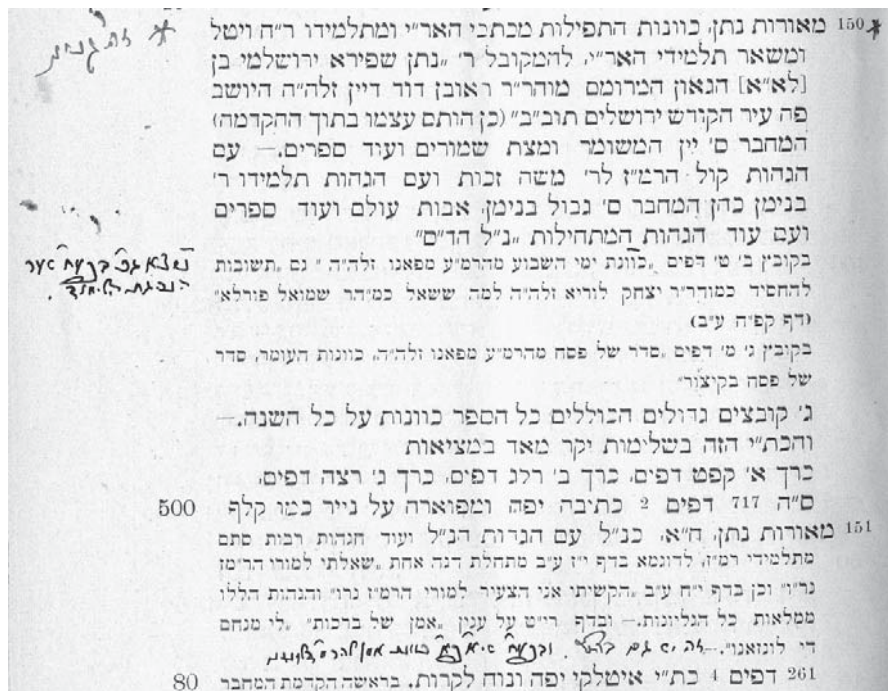 150 מאורות נתן, כוונות התפילות מכתבי האר״י ומתלמידו ר״ח ויטל
ומשאר תלמידי האר״י, להמקובל ר׳ „נתן שפירא ירושלמי בן
[לא״א] הגאון המרומם מוהר״ר ראובן דוד דיין זלה״ה היושב
פה עיר הקודש ירושלים תוב״ב״ (כן הותם עצמו בתוך ההקדמה)
המחבר ס׳ יין המשומר ומצת שמורים ועוד ספרים.— עם
הגהות קול הרמ״ז לר׳ משה זכות ועם הגהות תלמידו ר׳
בנימן כהן המחבר ס׳ גבול בנימן, אבות עולם ועוד ספרים
ועם עוד הגהות המתחילות „נ״ל הד״ס״
בקובץ ב׳ ט׳ דפים „כוונת ימי השבוע מהרמ״ע מפאנו, זלה״ה.״ גם „תשובות
להחסיד כמודר״ר יצחק לוריא זלה״ה למה ששאל כמ״הר שמואל פורלא״
(דף קפ״ה ע״ב)
בקובץ ג׳ מ׳ דפים „סדר של פסח מהרמ״ע מפאנו זלה״ה, כוונות העומר, סדר
של פסח בקיצור״
ג׳ קובצים גדולים הכוללים כל הספר כוונות על כל השנה.—
והכת״י הזה בשלימות יקר מאד במציאות
כרך א׳ קפט דפים, כרך ב׳ רלג דפים, כרך ג׳ רצה דפים,
ס״ה 717 דפים 2 כתיבה יפה ומפוארה על נייר כמו קלף 500
151 מאורות נתן, ח״א, כנ״ל עם הגהות הנ״ל ועוד הגהות רבות סתם
מתלמידי רמ״ז, לדוגמא בדף י״ז ע״ב מתחלת דגה אחת „שאלתי למורו הר״מז
נר״ו״ וכן בדף י״ח ע״ב „הקשיתי אני הצעיר למורי הרמ״ז נרו״ והגהות הללו
ממלאות כל הגליונות.— ובדף רי״ט על ענין „אמן של ברכות״ „לי מנחם
די לונזאנו״.—
261 דפים 4 כת״י איטלקי יפה ונוח לקרות, בראשה הקדמת המחבר 80